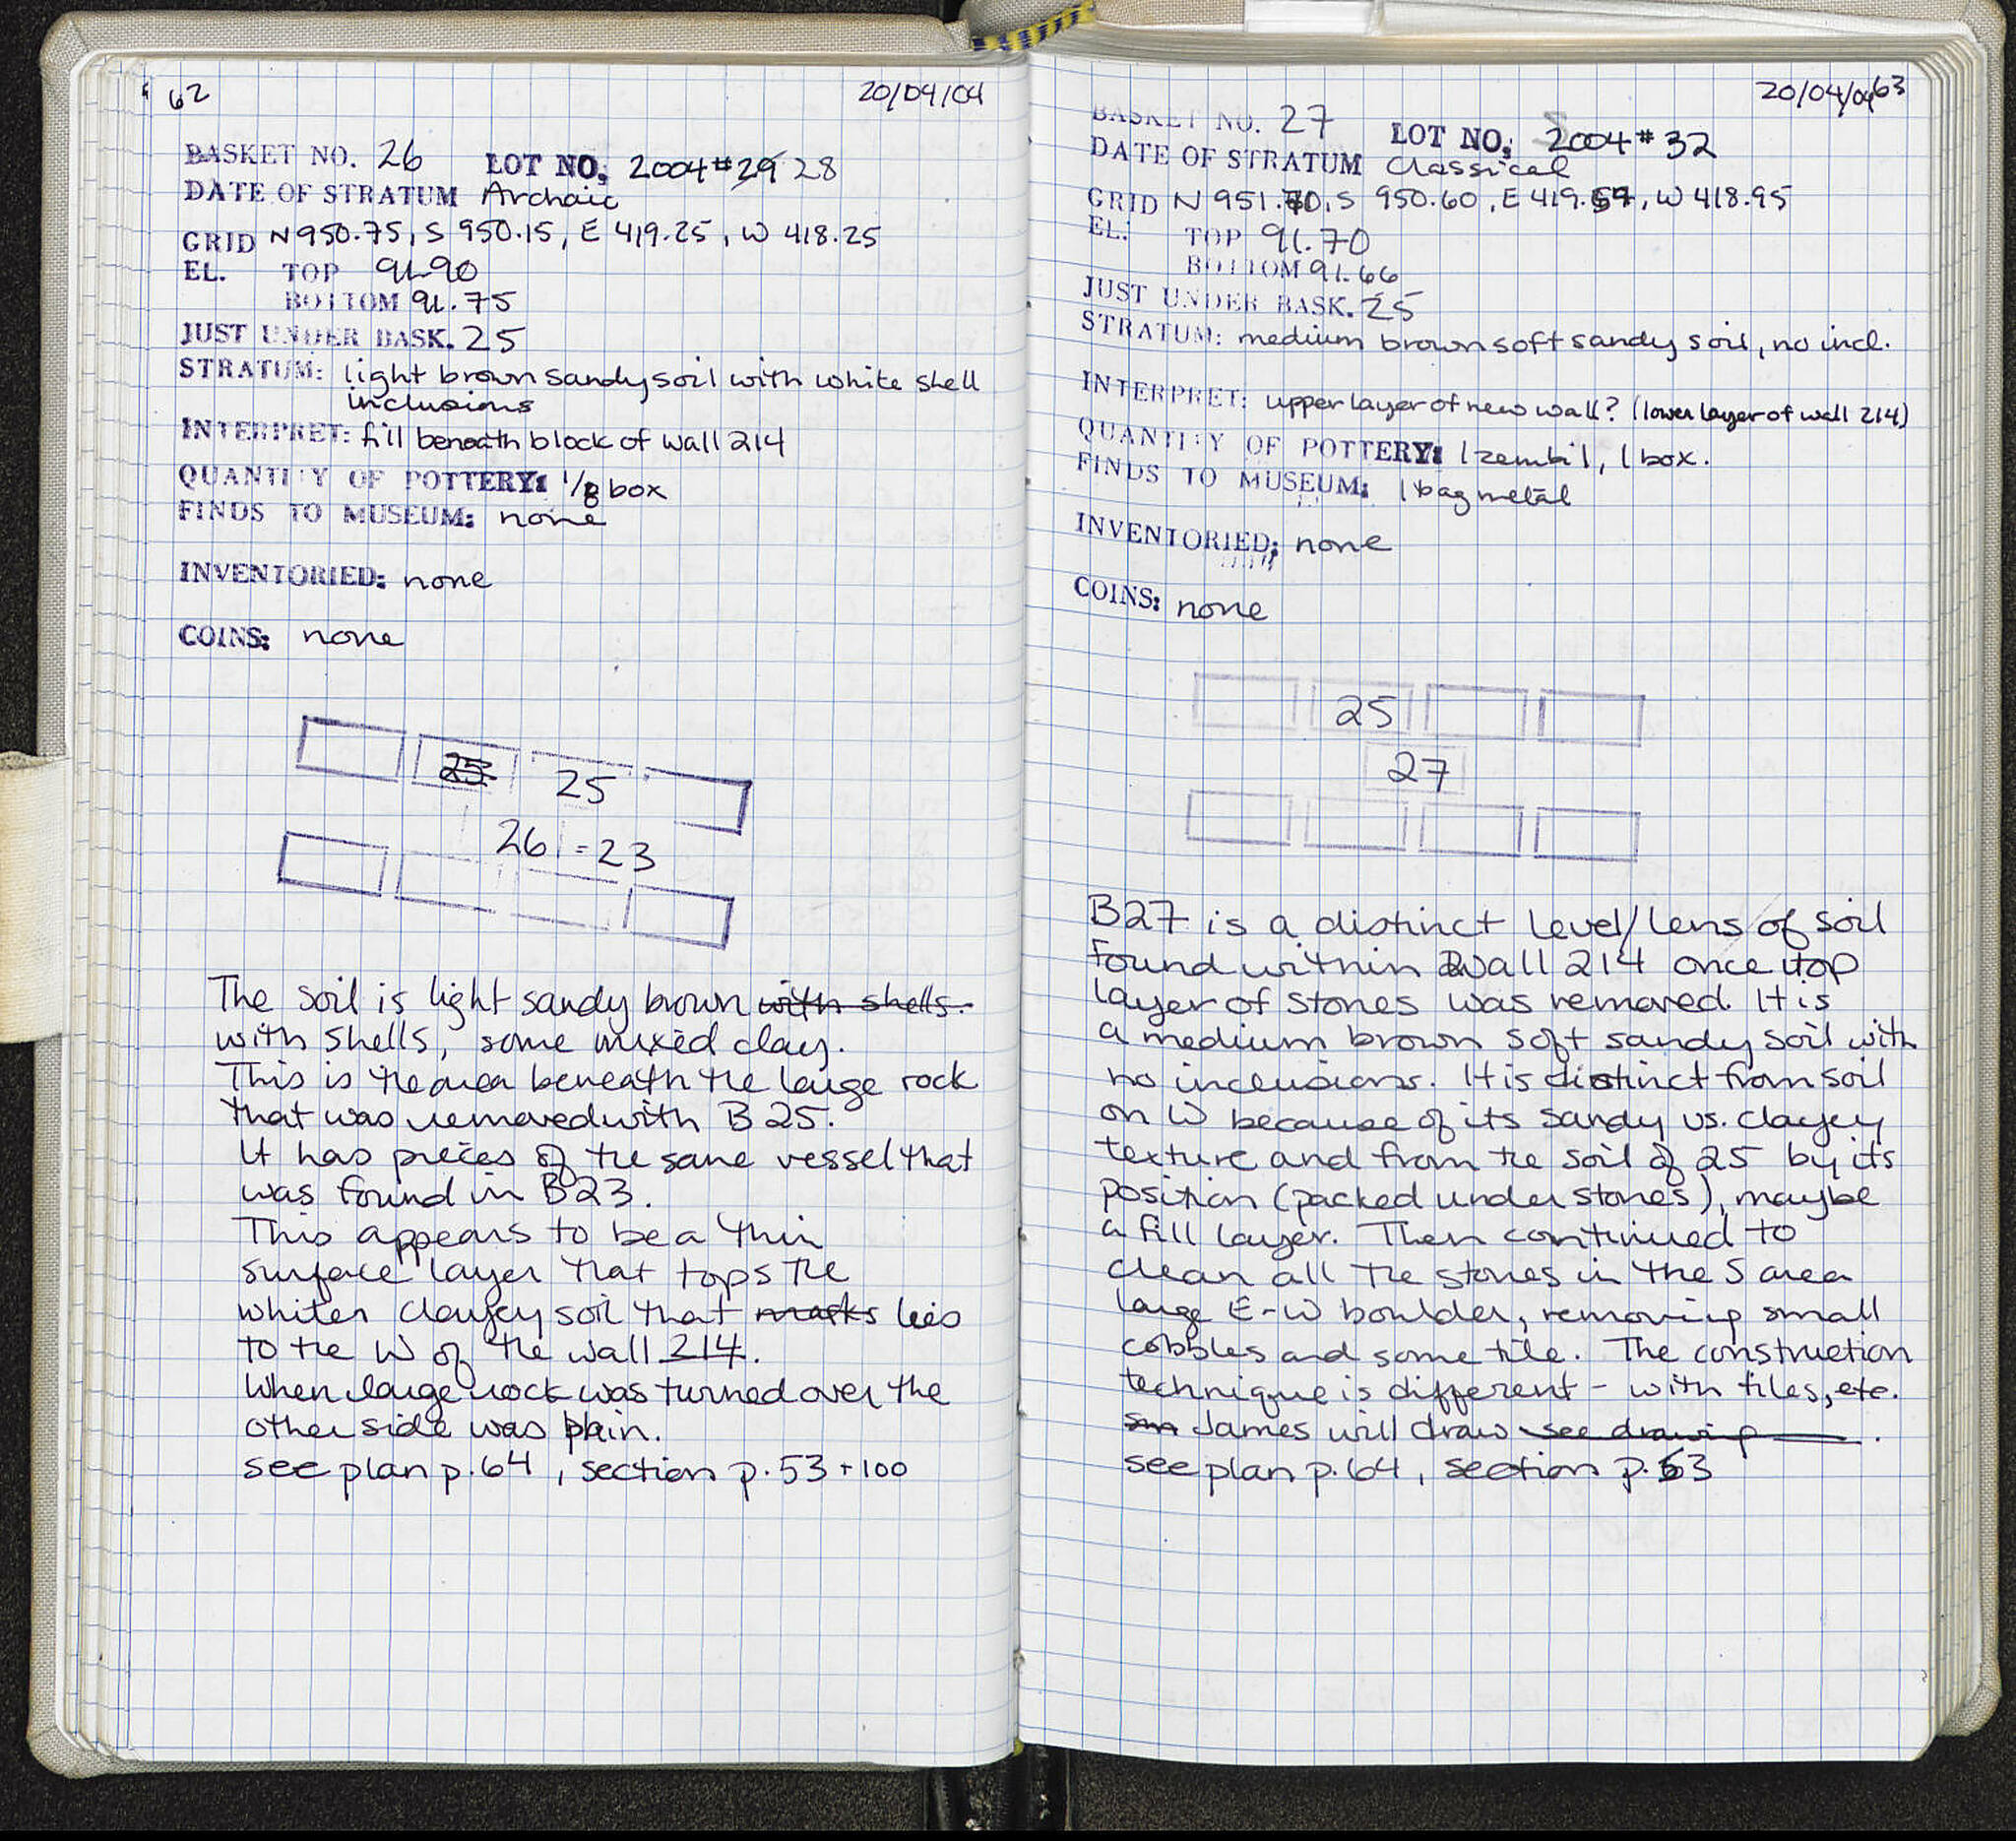 62 20/04/04
BASKET NO. 26 LOT NO. 2004 #29 28
DATE OF STRATUM Archaic
GRID N 950.75, S 950.15, E 419.25, W 418.25
EL. TOP 91.90
BOTTOM 91.75
JUST UNDER BASK. 25
STRATUM: light brown sandy soil with white shell
inclusions
INTERPRET: fill beneath block of wall 214
QUANTITY OF POTTERY: 1/8 box
FINDS TO MUSEUM: none
INVENTORIED: none
COINS: none
25 25
26 = 23
The soil is light sandy brown with shells.
with shells, some mixed clay.
This is the area beneath the large rock
that was removed with B 25.
It has pieces of the same vessel that
was found in B23.
This appears to be a thin
surface layer that tops the
whiter clayey soil that marks lies
to the W of the wall 214.
When large rock was turned over the
other side was plain.
see plan p.64, section p.53 + 100
20/04/04 63
BASKET NO. 27 LOT NO. 2004 #32
DATE OF STRATUM Classical
GRID N 951.70, S 950.60, E 419.59, W 418.95
EL. TOP 91.70
BOTTOM 91.66
JUST UNDER BASK. 25
STRATUM: medium brown soft sandy soil, no incl.
INTERPRET: upper layer of new wall? (lower layer of wall 214)
QUANTITY OF POTTERY: 1 zembil, 1 box.
FINDS TO MUSEUM: 1 bag metal
INVENTORIED: none
COINS: none
25
27
B27 is a distinct level/lens of soil
found within wall 214 once top
layer of stones was removed. It is
a medium brown soft sandy soil with
no inclusions. It is distinct from soil
on W because of its sandy vs. clayey
texture and from the soil of 25 by its
position (packed under stones), maybe
a fill layer. Then continued to
clean all the stones in the S area
large E-W boulder, removing small
cobbles and some tile. The construction
technique is different - with tiles, etc.
James will draw see drawing
see plan p.64, section p.53